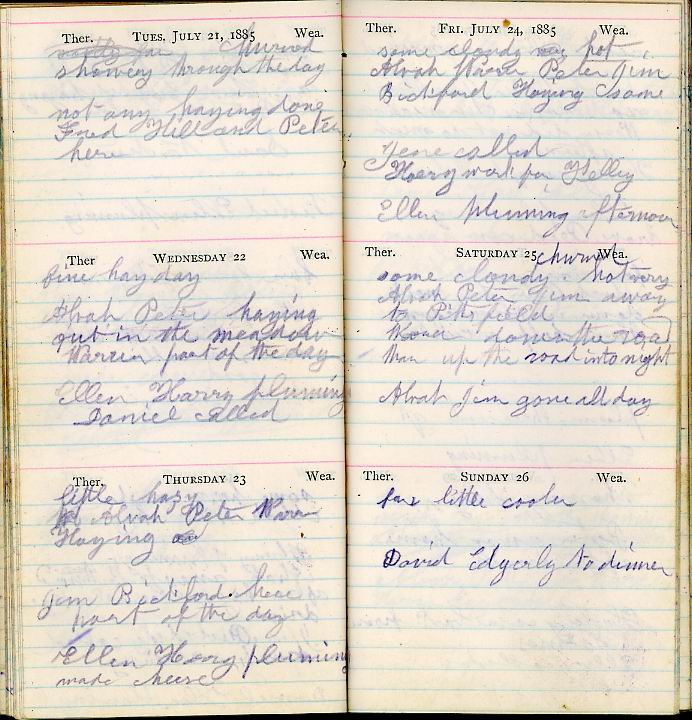 Ther. TUES. JULY 21, 1885 Wea.
churned
showery through the day
not any haying done
Fred Hill and Peter
here
Ther WEDNESDAY 22 Wea.
fine hay day
Alvah Peter haying
out in the meadow
Warren part of the day
Ellen Harry pluming
Daniel called
Ther. THURSDAY 23 Wea.
little hazy
Alvah Peter Warren
Haying
Jim Bickford here
part of the day
Ellen Harry pluming
made cheese
Ther. FRI. JULY 24, 1885 Wea.
some cloudy hot
Alvah Peter Jim
Bickford Haying some
Gene called
Harry work for Kelley
Ellen pluming afternoon
Ther. SATURDAY 25 Wea.
churned
some cloudy hot very
Alvah Peter Jim away
to Pittsfield
down the road
than up the road into night
Alvah Jim gone all day
Ther. SUNDAY 26 Wea.
fair little cooler
David Edgerly to dinner